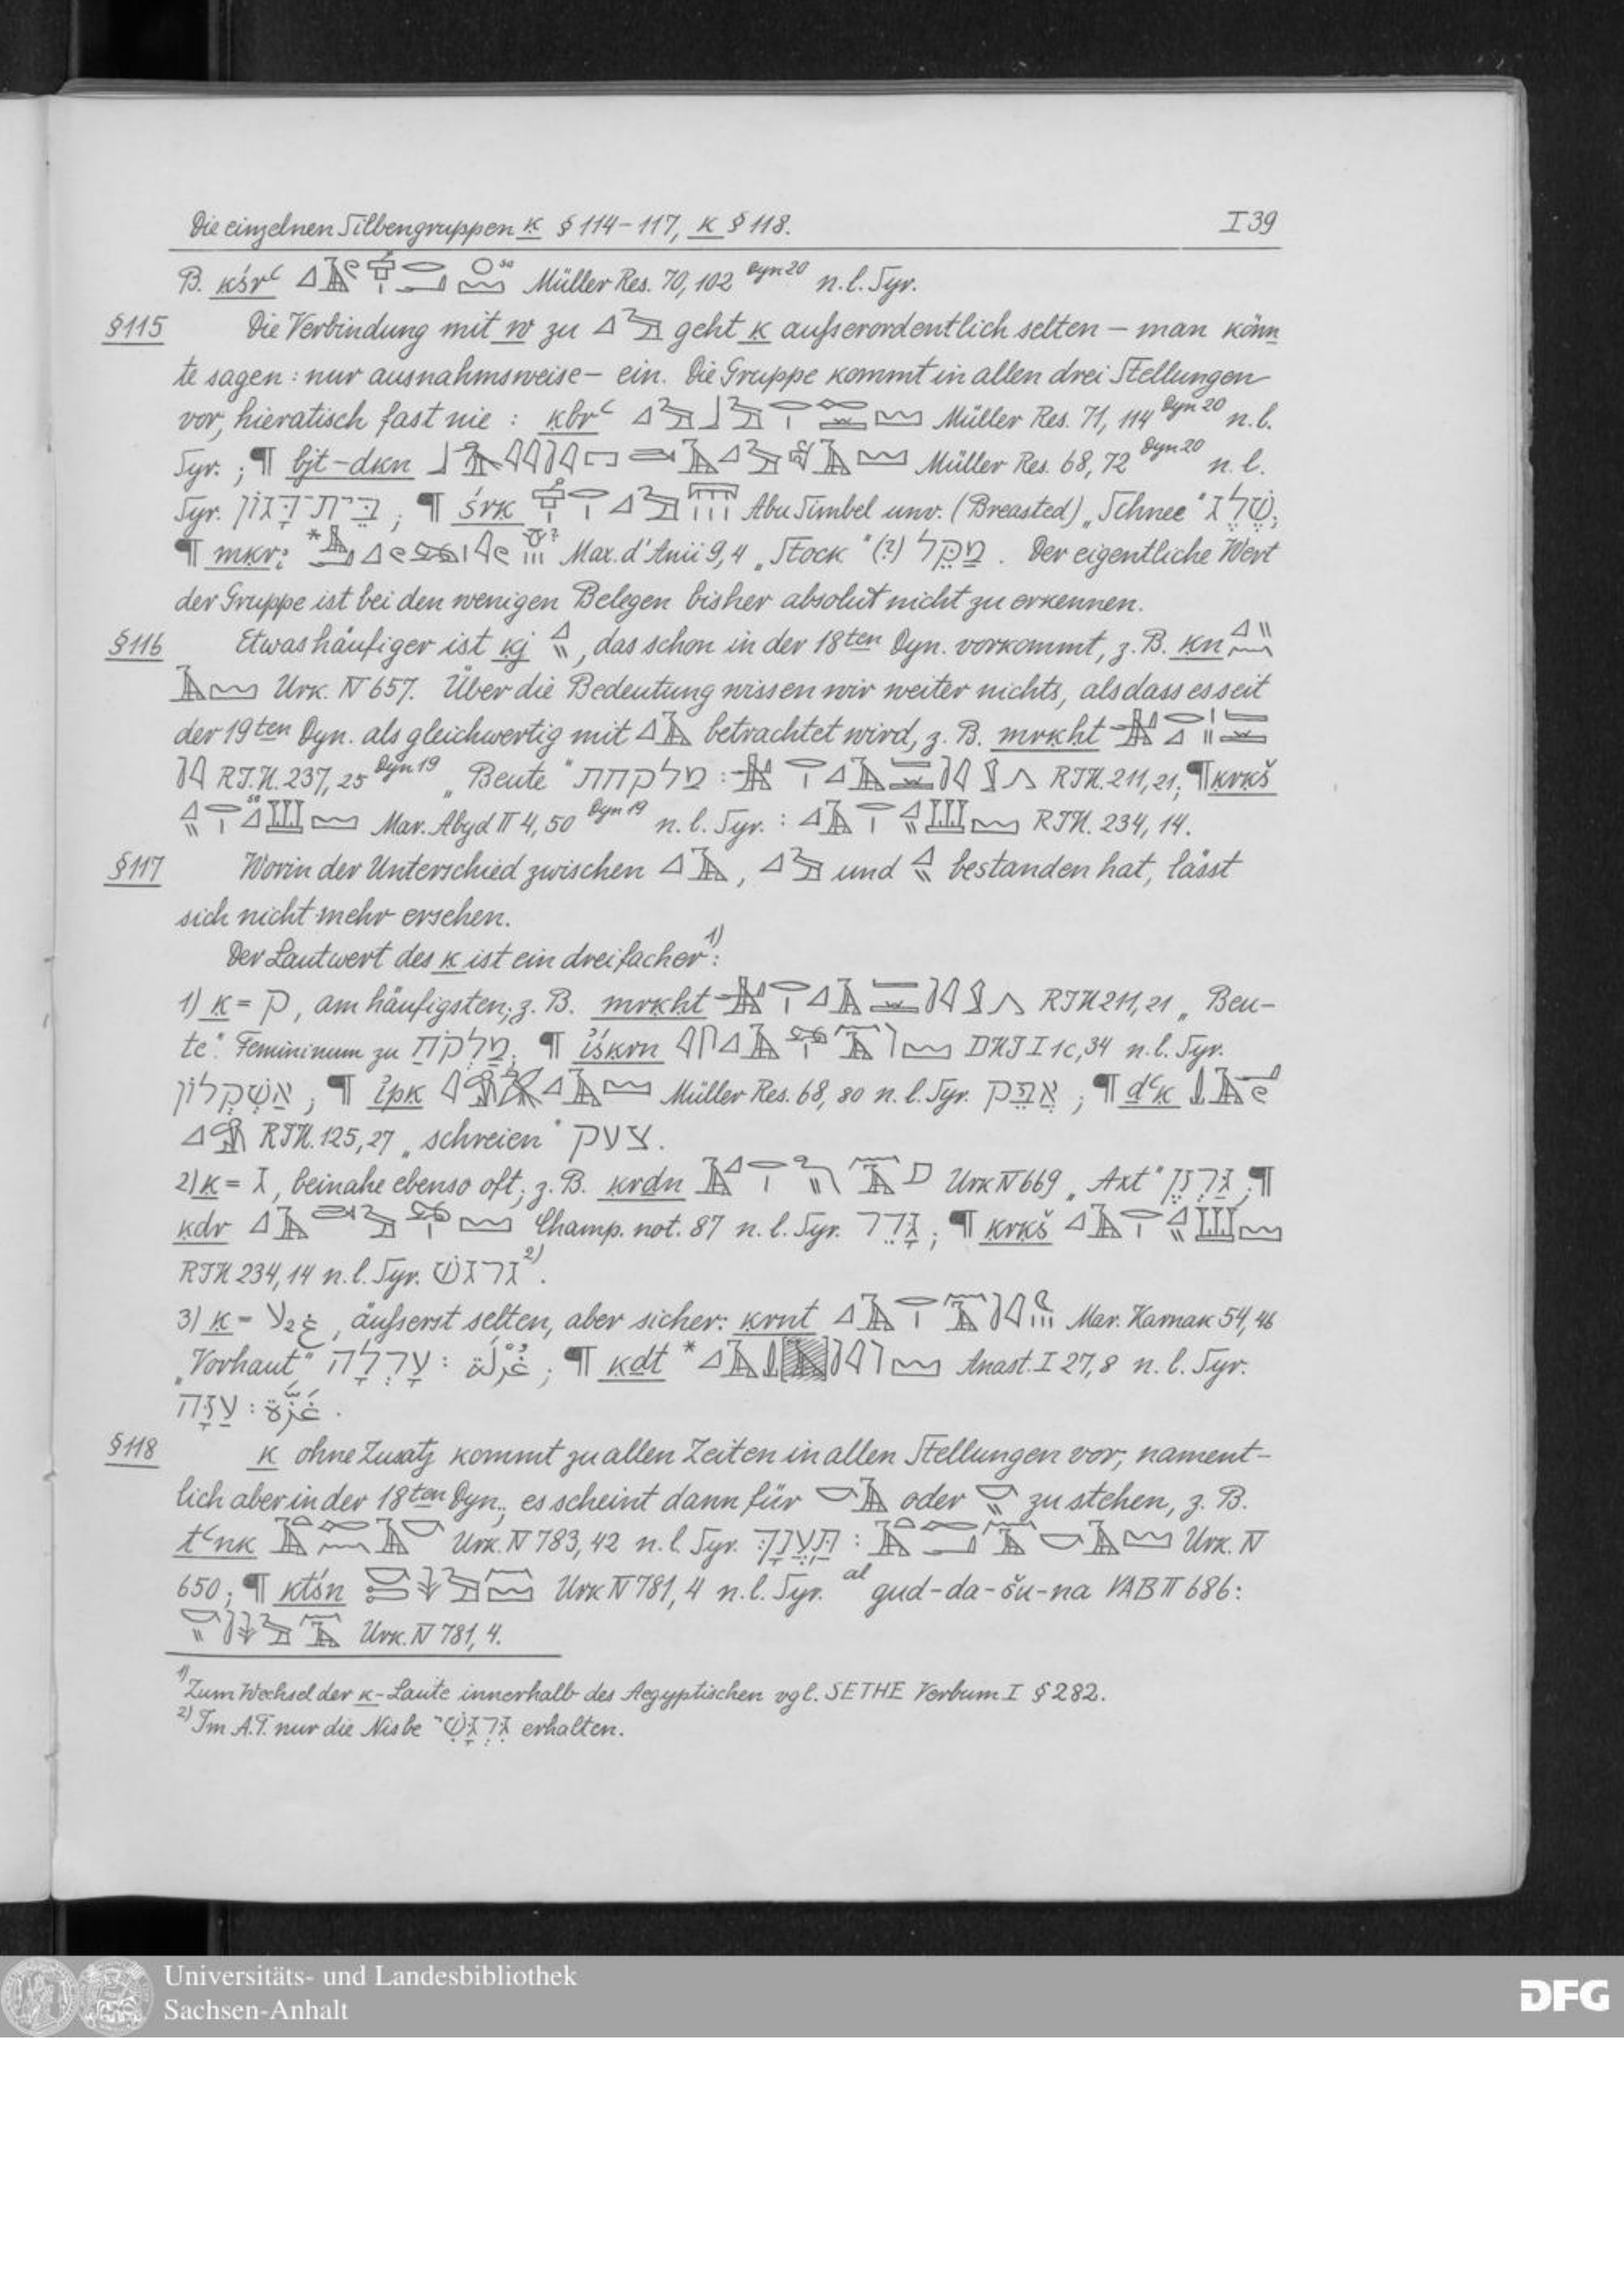 Die einzelnen Silbengruppen ḳ § 114–117, k § 118. I 39
B. ḳśrʿ Müller Res. 70, 102 Dyn 20 n. l. Syr.
§115 Die Verbindung mit w zu geht ḳ aufserordentlich selten – man könn
te sagen: nur ausnahmsweise – ein. Die Gruppe kommt in allen drei Stellungen
vor, hieratisch fast nie : ḳbrʿ Müller Res. 71, 114 Dyn 20 n. l.
Syr. ; ¶ bjt-dḳn Müller Res. 68, 72 Dyn 20 n. l.
Syr. בֵּית־דָּגוֹן ; ¶ śrḳ Abu Simbel unv. (Breasted) „Schnee“ שֶׁלֶג ;
¶ mḳr: Max. d'Anii 9, 4 „Stock“ (?) מַקֵּל . Der eigentliche Wert
der Gruppe ist bei den wenigen Belegen bisher absolut nicht zu erkennen.
§116 Etwas häufiger ist ḳj , das schon in der 18ten Dyn. vorkommt, z. B. ḳn
Urk. IV 657. Über die Bedeutung wissen wir weiter nichts, als dass es seit
der 19ten Dyn. als gleichwertig mit betrachtet wird, z. B. mrḳḥt
R.I.H. 237, 25 Dyn 19 „Beute“ מלקחת : RIH. 211, 21; ¶ ḳrḳš
Mar. Abyd II 4, 50 Dyn 19 n. l. Syr. : RIH. 234, 14.
§117 Worin der Unterschied zwischen , und bestanden hat, lässt
sich nicht mehr ersehen.
Der Lautwert des ḳ ist ein dreifacher 1):
1) ḳ = ק, am häufigsten; z. B. mrḳḥt RIH 211, 21 „Beu-
te“. Femininum zu מַלְקֹחַ ; ¶ iśḳrn DHI I 1c, 34 n. l. Syr.
אַשְׁקְלוֹן ; ¶ ipḳ Müller Res. 68, 80 n. l. Syr. אֲפֵק ; ¶ ḏʿḳ
RIH. 125, 27 „schreien“ צעק .
2) ḳ = ג, beinahe ebenso oft; z. B. ḳrḏn Urk IV 669 „Axt“ גַּרְזֶן ; ¶
ḳdr Champ. not. 87 n. l. Syr. גָּדֵר ; ¶ ḳrḳš
RIH 234, 14 n. l. Syr. גרגשׁ 2).
3) ḳ = ע2 غ, äufserst selten, aber sicher: ḳrnt Mar. Karnak 54, 46
„Vorhaut“ עָרְלָה : غُرْلَة ; ¶ ḳḏt * Anast. I 27, 8 n. l. Syr.
עַזָּה : غَزَّة .
§118 k ohne Zusatz kommt zu allen Zeiten in allen Stellungen vor, nament-
lich aber in der 18ten Dyn., es scheint dann für oder zu stehen, z. B.
tʿnk Urk. IV 783, 42 n. l. Syr. תַּעֲנָךְ : Urk. IV
650; ¶ ktśn Urk IV 781, 4 n. l. Syr. al gud-da-šu-na VAB II 686:
Urk. IV 781, 4.
1) Zum Wechsel der k-Laute innerhalb des Aegyptischen vgl. SETHE Verbum I § 282.
2) Im A.T. nur die Nisbe גִּרְגָּשִׁי erhalten.
Universitäts- und Landesbibliothek
Sachsen-Anhalt
DFG